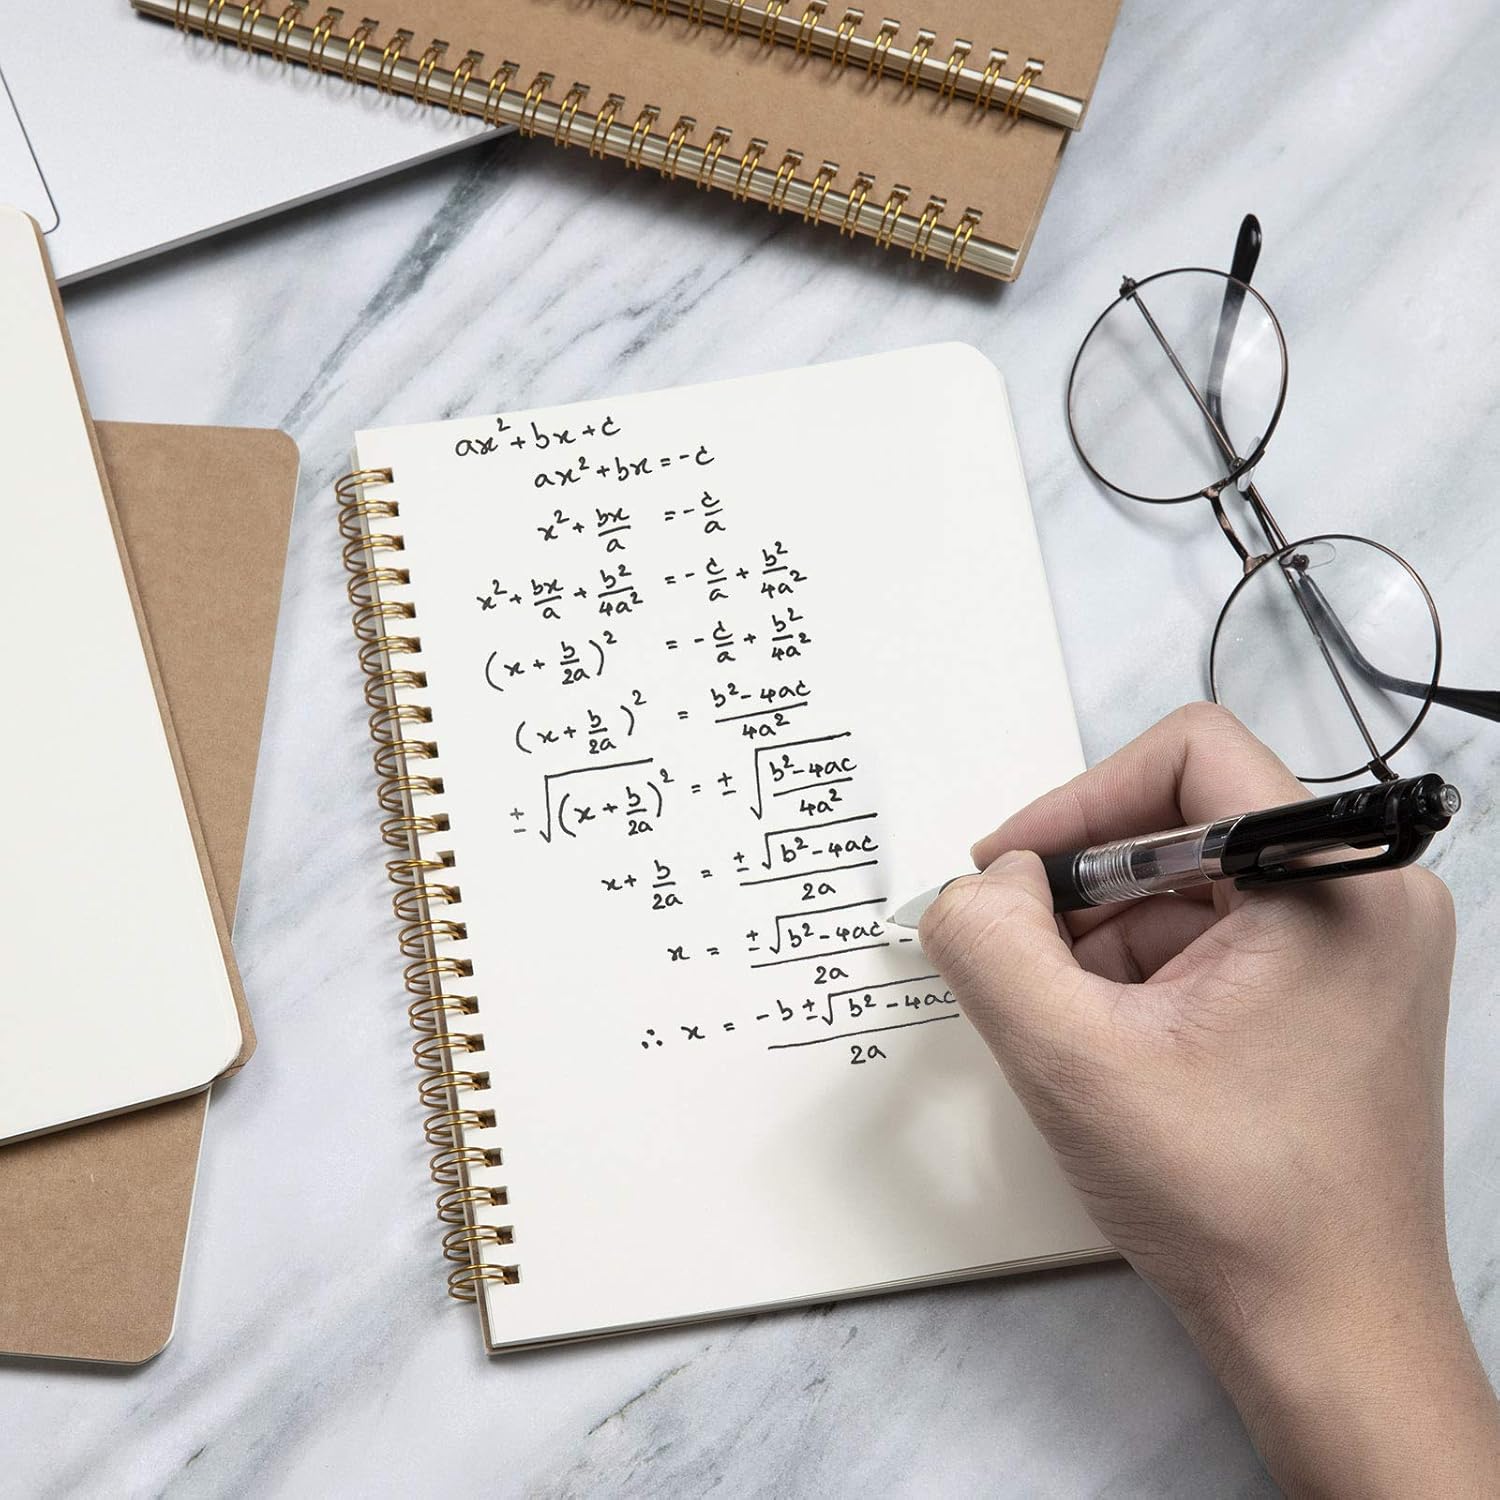 ax² + bx + c
ax² + bx = -c
x² + bx/a = -c/a
x² + bx/a + b²/4a² = -c/a + b²/4a²
(x + b/2a)² = -c/a + b²/4a²
(x + b/2a)² = b² - 4ac/4a²
± √(x + b/2a)² = ± √b² - 4ac/4a²
x + b/2a = ± √b² - 4ac/2a
x = ± √b² - 4ac/2a -
∴ x = -b ± √b² - 4ac/2a